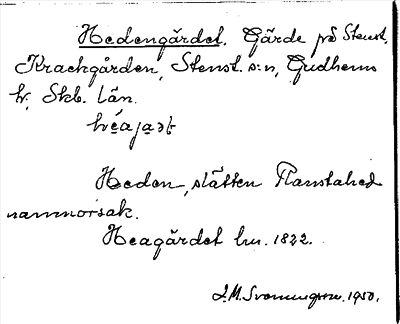 Hedengärdet. Gärde på Stenst.
Krackgården, Stenst. s:n, Gudhems
hr, Skb. län.
Heden, slätten Flanstahed
namnorsak.
Heagärdet lm. 1822.
1950.